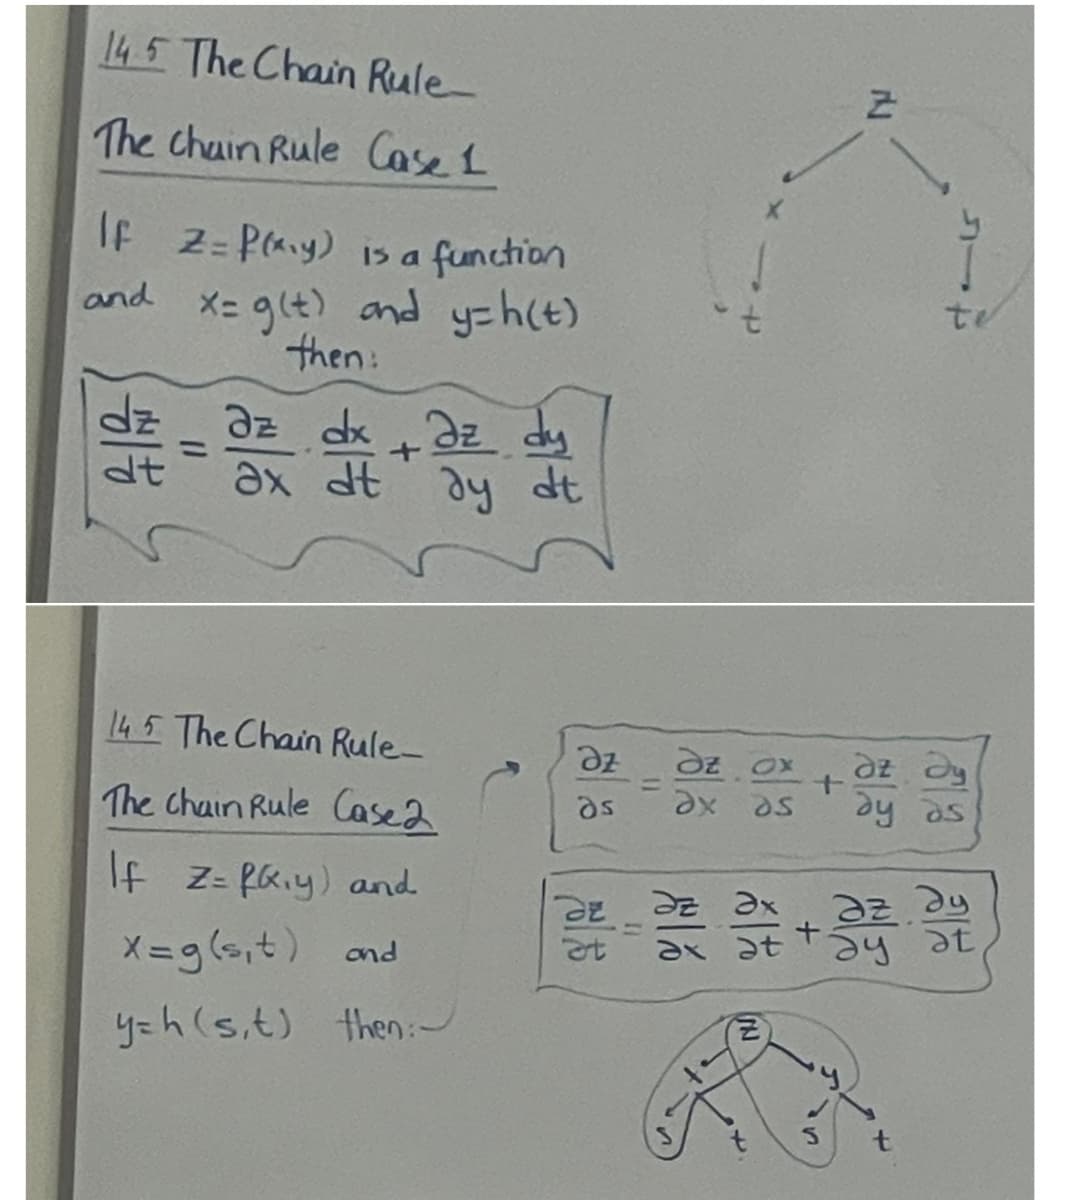 14.5 The Chain Rule
The Chain Rule Case 1
If z=f(x,y) is a function
and x=g(t) and y=h(t)
then:
dz/dt = ∂z/∂x · dx/dt + ∂z/∂y · dy/dt
z
x y
t t
14.5 The Chain Rule
The Chain Rule Case 2
If z=f(x,y) and
x=g(s,t) and
y=h(s,t) then:-
∂z/∂s = ∂z/∂x · ∂x/∂s + ∂z/∂y · ∂y/∂s
∂z/∂t = ∂z/∂x · ∂x/∂t + ∂z/∂y · ∂y/∂t
z
x y
s t s t